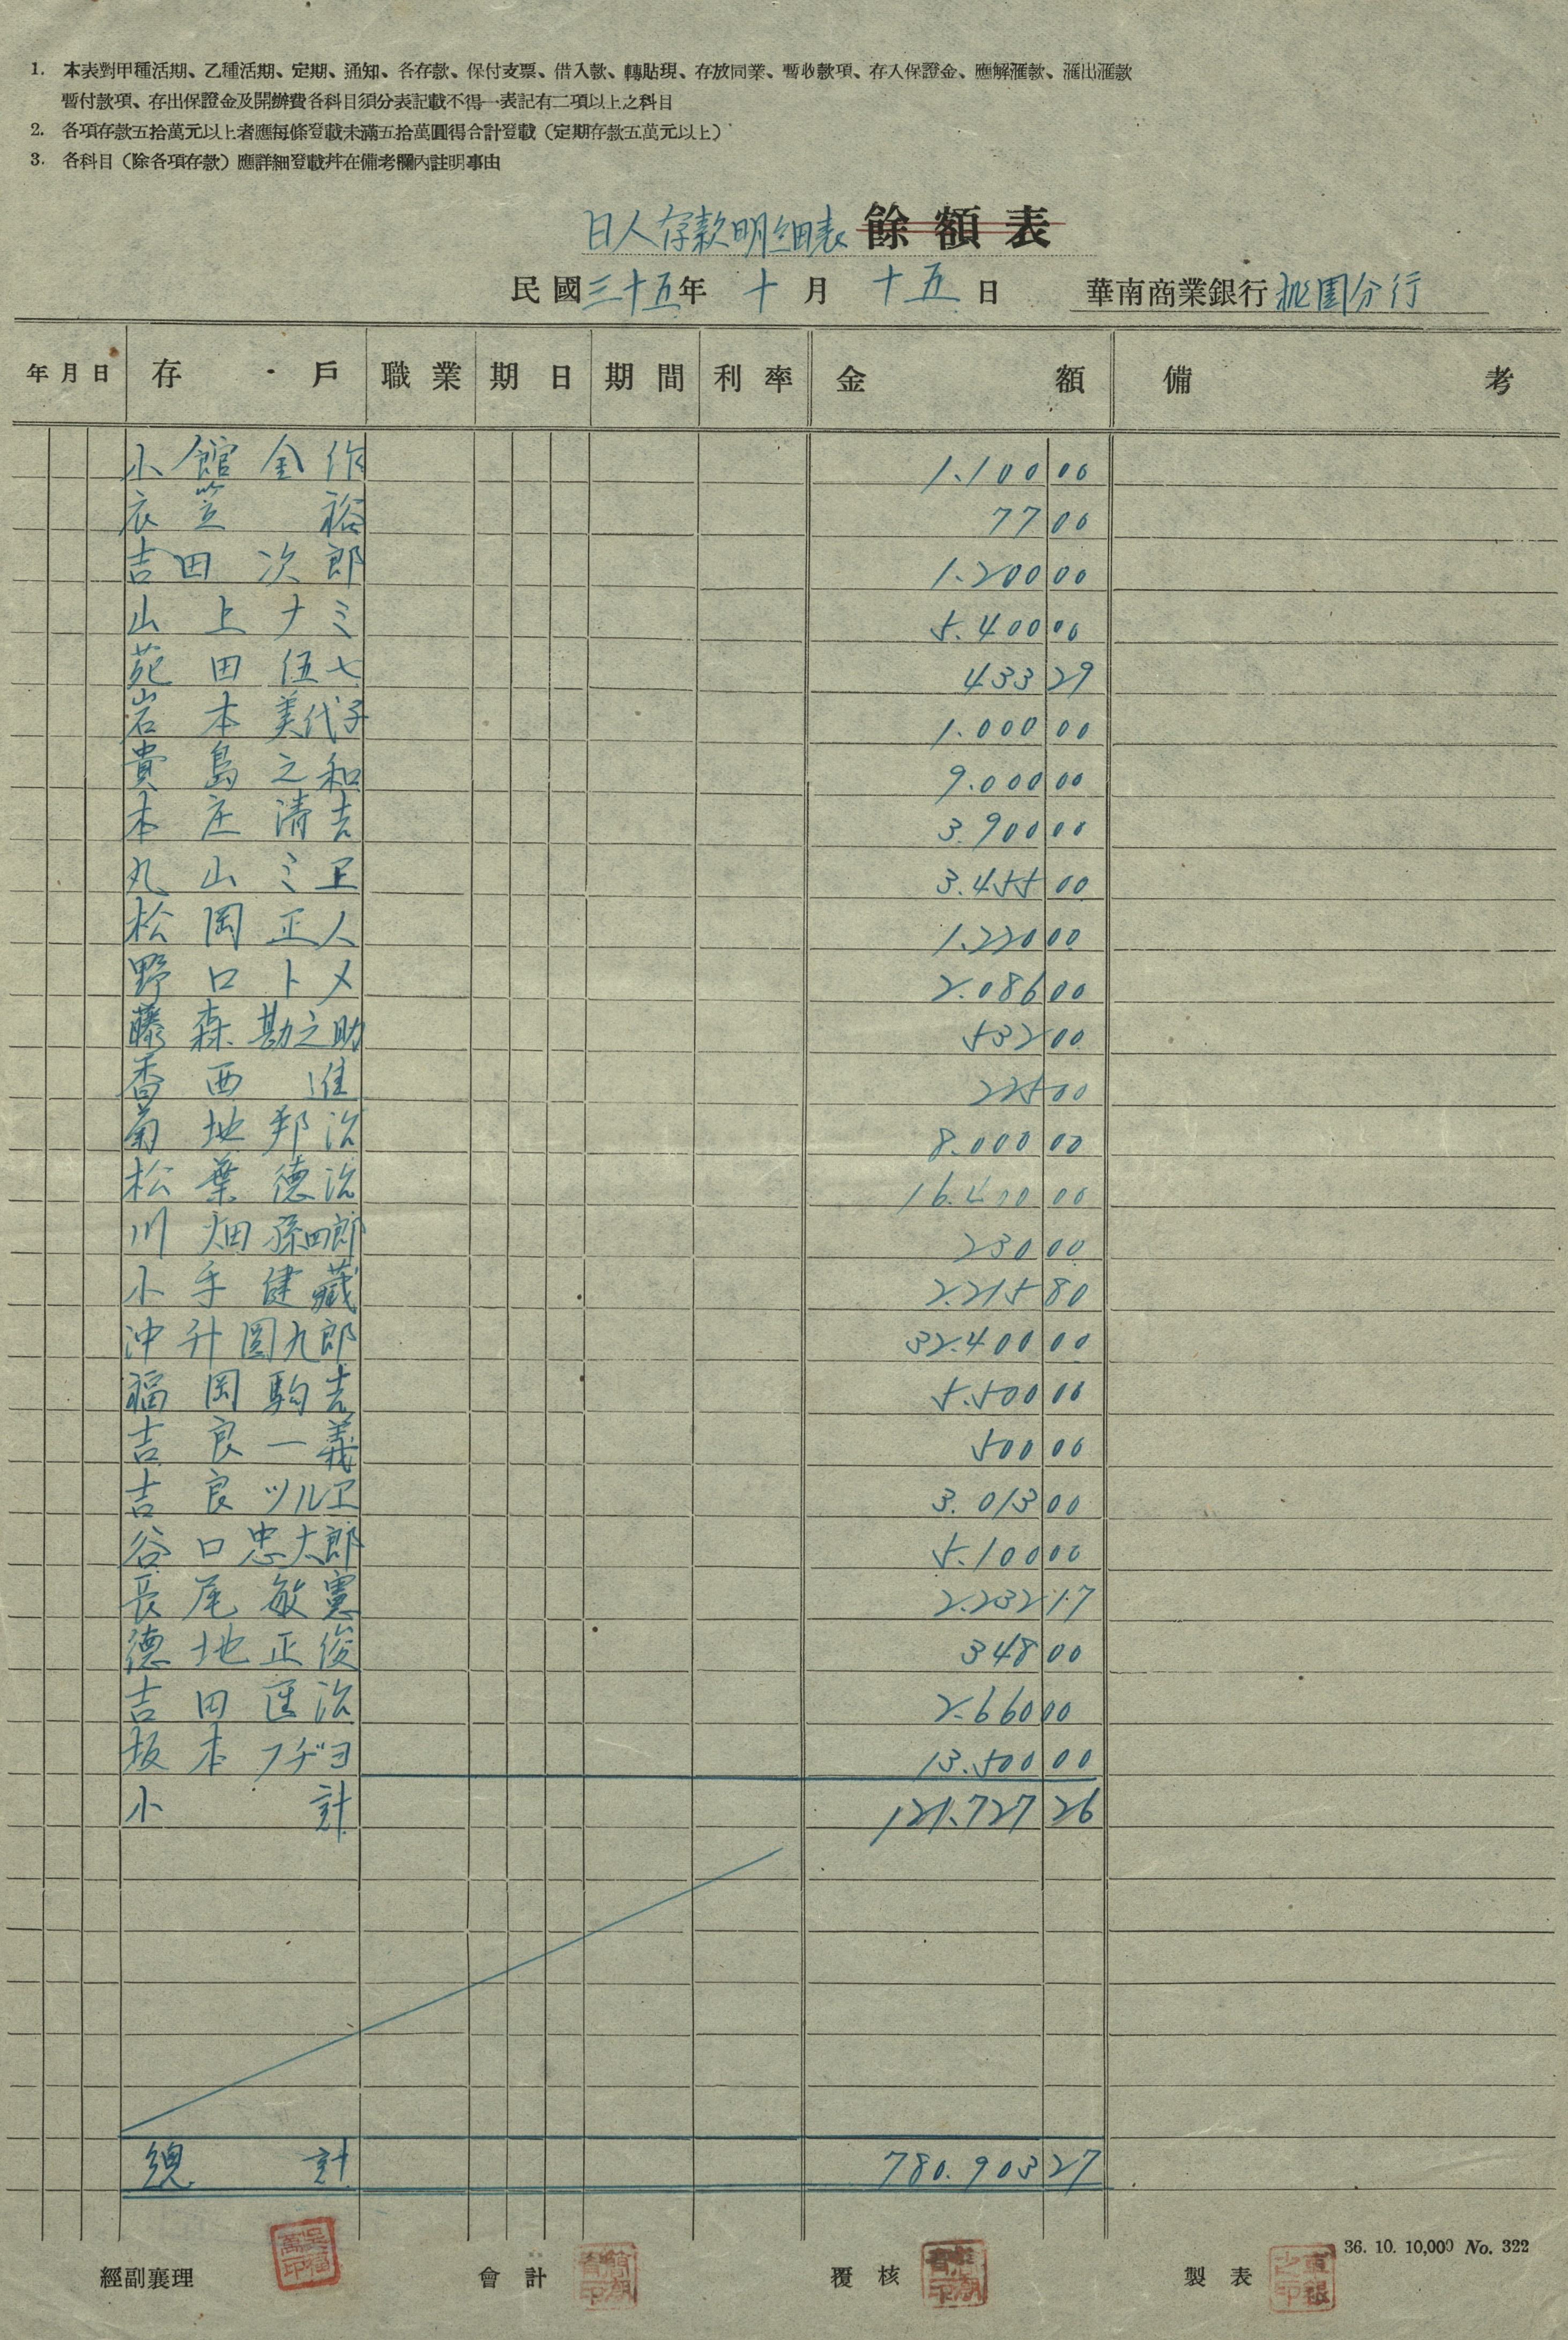 1. 本表對甲種活期、乙種活期、定期、通知、各存款、保付支票、借入款、轉貼現、存放同業、暫收款項、存入保證金、應解滙款、滙出滙款
暫付款項、存出保證金及開辦費各科目須分表記載不得一表記有二項以上之科目
2. 各項存款五拾萬元以上者應每條登載未滿五拾萬圓得合計登載（定期存款五萬元以上）
3. 各科目（除各項存款）應詳細登載幷在備考欄內註明事由
日人存款明細表 餘額表
民國三十五年 十月 十五日 華南商業銀行桃園分行
年月日 存戶 職業 期日 期間 利率 金額 備考
小館金作 1.100 00
衣笠裕 77 00
吉田次郎 1.200 00
山上ナミ 5.400 00
苑田伍七 433 29
岩本美代子 1.000 00
貴島之和 9.000 00
本庄清吉 3.900 00
丸山ミヱ 3.455 00
松岡正人 1.220 00
野口トメ 2.086 00
藤森勘之助 532 00
香西進 225 00
菊地邦治 8.000 00
松葉德治 16.400 00
川畑孫四郎 230 00
小手健藏 2.215 80
沖升圓九郎 32.400 00
福岡駒吉 5.500 00
吉良一義 500 00
吉良ツルヱ 3.013 00
谷口忠太郎 5.100 00
長尾敏憲 2.232 17
德地正俊 348 00
吉田匡治 2.660 00
坂本フヂヨ 13.500 00
小計 121.727 26
總計 780.903 27
36. 10. 10,000 No. 322
經副襄理 會計 覆核 製表